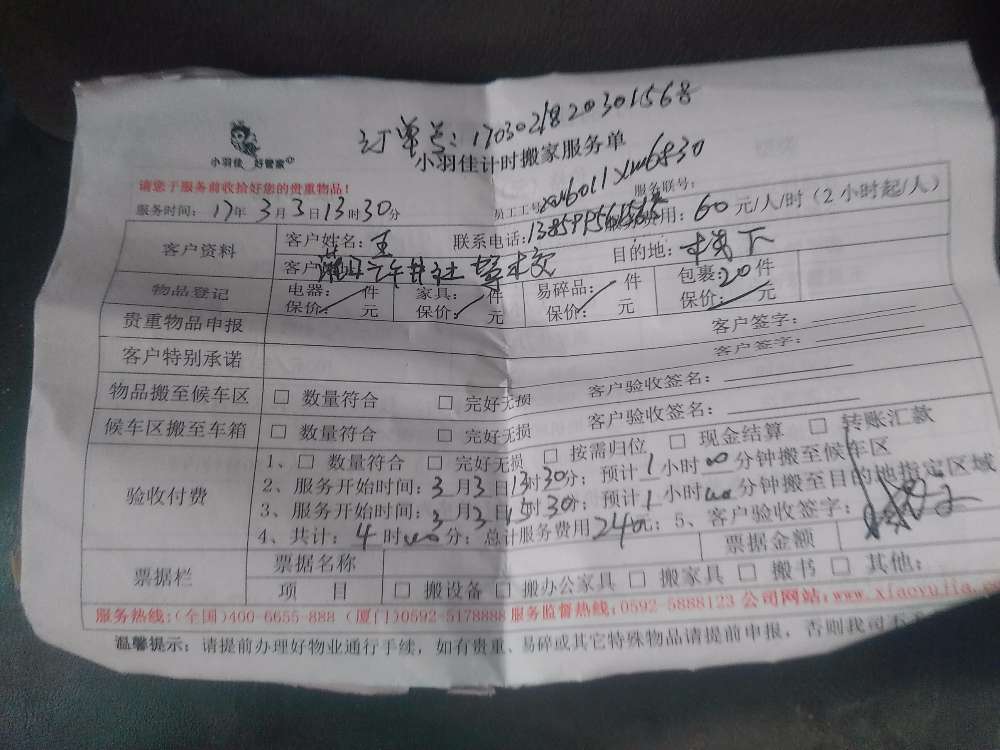 订单号: 1703021820301568
小羽佳 好管家
小羽佳计时搬家服务单
请您于服务前收拾好您的贵重物品!
员工工号 xm6011 xm6830 服务联号:
服务时间: 17年3月3日13时30分 服务费用: 60元/人/时(2小时起/人)
客户资料 客户姓名: 王 联系电话: 目的地: 楼下
客户
物品登记 电器: 件 家具: 件 易碎品: 件 包裹: 20件
保价: 元 保价: 元 保价: 元 保价: 元
贵重物品申报 客户签字:
客户特别承诺 客户签字:
物品搬至候车区 □ 数量符合 □ 完好无损 客户验收签名:
候车区搬至车箱 □ 数量符合 □ 完好无损 客户验收签名:
验收付费 1、□ 数量符合 □ 完好无损 □ 按需归位 □ 现金结算 □ 转账汇款
2、服务开始时间: 3月3日13时30分; 预计1小时00分钟搬至候车区
3、服务开始时间: 3月3日15时30分; 预计1小时00分钟搬至目的地指定区域
4、共计: 4时00分; 总计服务费用240元; 5、客户验收签字:
票据栏 票据名称 票据金额
项 目 □ 搬设备 □ 搬办公家具 □ 搬家具 □ 搬书 □ 其他:
服务热线:(全国)400-6655-888 (厦门)0592-5178888 服务监督热线:0592-5888123 公司网站:www.xiaoyujia.c
温馨提示: 请提前办理好物业通行手续, 如有贵重、易碎或其它特殊物品请提前申报, 否则我司不